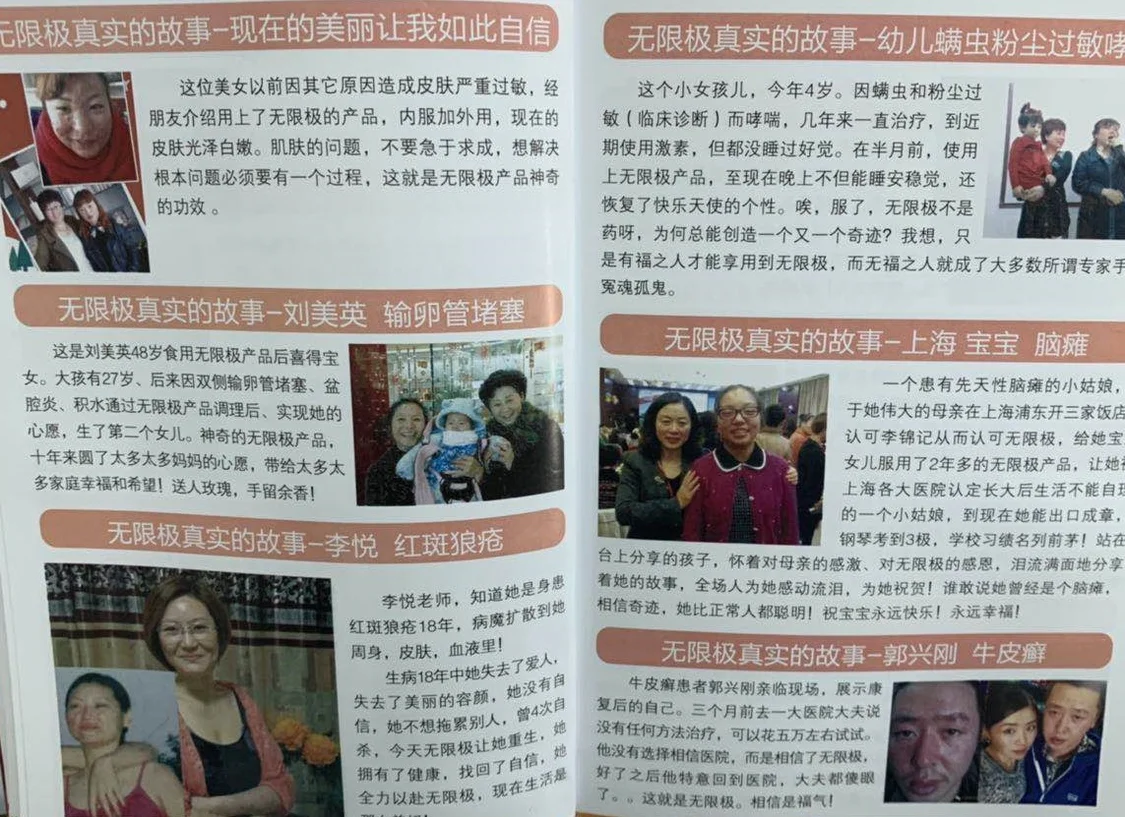 无限极真实的故事-现在的美丽让我如此自信
这位美女以前因其它原因造成皮肤严重过敏，经
朋友介绍用上了无限极的产品，内服加外用，现在的
皮肤光泽白嫩。肌肤的问题，不要急于求成，想解决
根本问题必须要有一个过程，这就是无限极产品神奇
的功效 。
无限极真实的故事-刘美英 输卵管堵塞
这是刘美英48岁食用无限极产品后喜得宝
女。大孩有27岁、后来因双侧输卵管堵塞、盆
腔炎、积水通过无限极产品调理后、实现她的
心愿，生了第二个女儿。神奇的无限极产品，
十年来圆了太多太多妈妈的心愿，带给太多太
多家庭幸福和希望！送人玫瑰，手留余香！
无限极真实的故事-李悦 红斑狼疮
李悦老师，知道她是身患
红斑狼疮18年，病魔扩散到她
周身，皮肤，血液里！
生病18年中她失去了爱人，
失去了美丽的容颜，她没有自
信，她不想拖累别人，曾4次自
杀，今天无限极让她重生，她
拥有了健康，找回了自信，她
全力以赴无限极，现在生活是
无限极真实的故事-幼儿螨虫粉尘过敏哮
这个小女孩儿，今年4岁。因螨虫和粉尘过
敏（临床诊断）而哮喘，几年来一直治疗，到近
期使用激素，但都没睡过好觉。在半月前，使用
上无限极产品，至现在晚上不但能睡安稳觉，还
恢复了快乐天使的个性。唉，服了，无限极不是
药呀，为何总能创造一个又一个奇迹？我想，只
是有福之人才能享用到无限极，而无福之人就成了大多数所谓专家手
冤魂孤鬼。
无限极真实的故事-上海 宝宝 脑瘫
一个患有先天性脑瘫的小姑娘，
于她伟大的母亲在上海浦东开三家饭店
认可李锦记从而认可无限极，给她宝
女儿服用了2年多的无限极产品，让她
上海各大医院认定长大后生活不能自理
的一个小姑娘，到现在她能出口成章，
钢琴考到3极，学校习绩名列前茅！站在
台上分享的孩子，怀着对母亲的感激、对无限极的感恩，泪流满面地分享
着她的故事，全场人为她感动流泪，为她祝贺！谁敢说她曾经是个脑瘫，
相信奇迹，她比正常人都聪明！祝宝宝永远快乐！永远幸福！
无限极真实的故事-郭兴刚 牛皮癣
牛皮癣患者郭兴刚亲临现场，展示康
复后的自己。三个月前去一大医院大夫说
没有任何方法治疗，可以花五万左右试试。
他没有选择相信医院，而是相信了无限极，
好了之后他特意回到医院，大夫都傻眼
了。。这就是无限极。相信是福气！